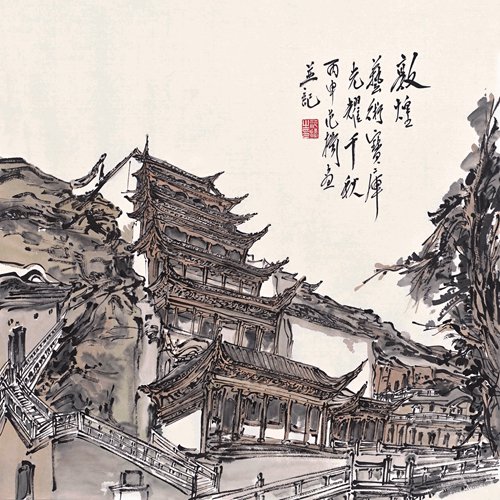 敦煌
藝術寶庫
光耀千秋
丙申
並記